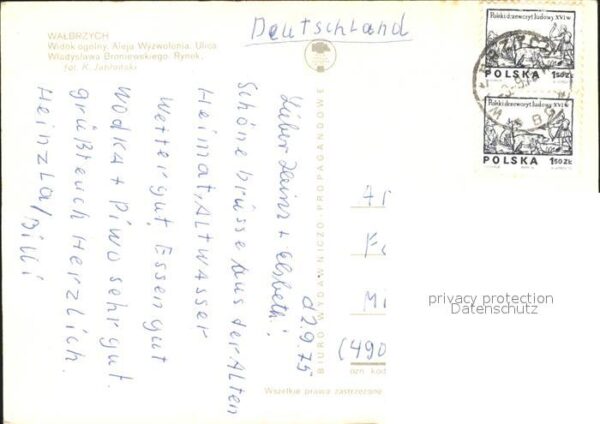 WAŁBRZYCH
Widok ogólny. Aleja Wyzwolenia. Ulica
Władysława Broniewskiego. Rynek.
fot. K. Jabłoński
Deutschland
Polski drzeworyt ludowy XVI w.
POLSKA 1,50 ZŁ
Polski drzeworyt ludowy XVI w.
POLSKA 1,50 ZŁ
d 2.9.75
Lieber Heinz + Elsbeth!
Schöne Grüsse aus der Alten
Heimat, Altwasser
Wetter gut, Essen gut
Wodka + Piwo sehr gut.
grüßt euch Herzlich
Heinzla/Billi
BIURO WYDAWNICZO-PROPAGANDOWE
(490
ozn kod
Wszelkie prawa zastrzeżone
privacy protection
Datenschutz